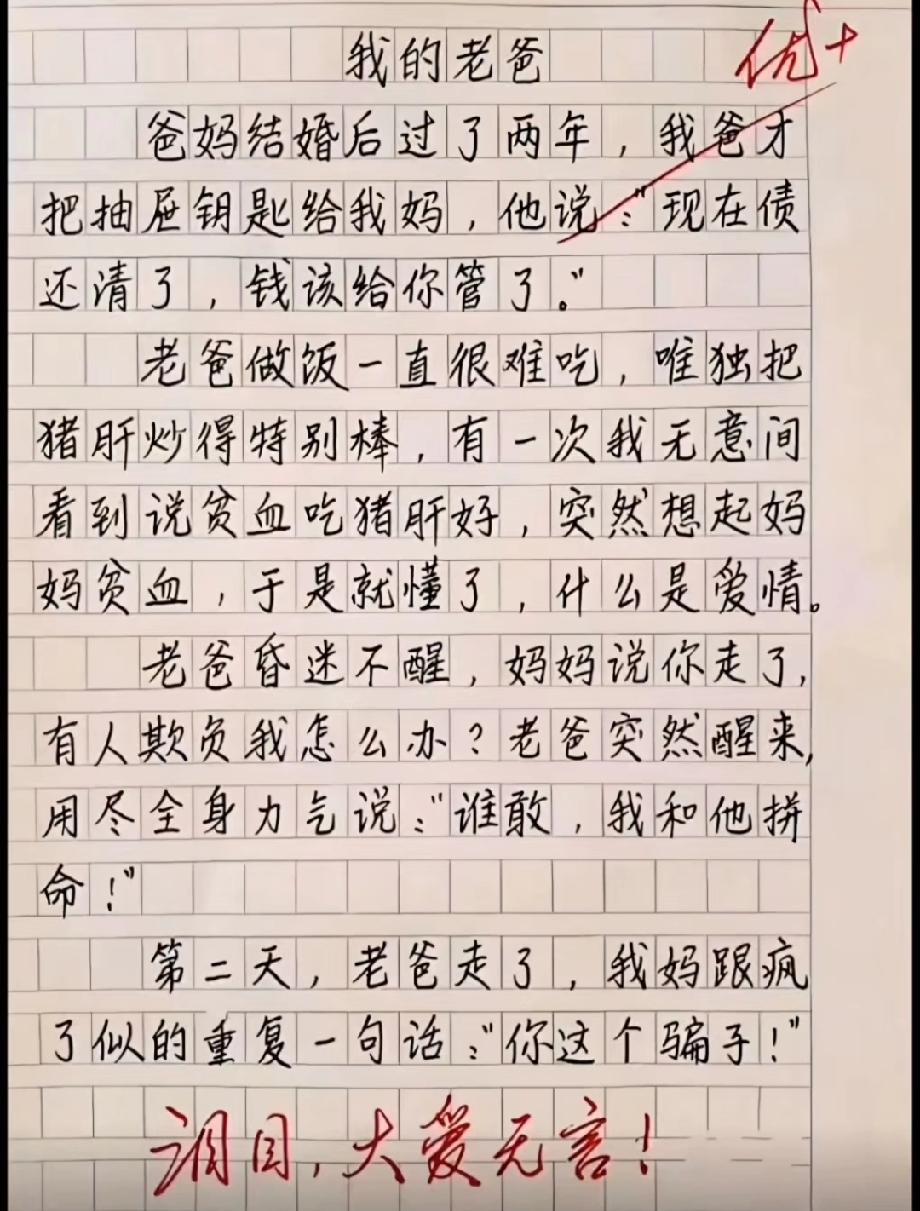 我的老爸
优+
爸妈结婚后过了两年，我爸才
把抽屉钥匙给我妈，他说："现在债
还清了，钱该给你管了。"
老爸做饭一直很难吃，唯独把
猪肝炒得特别棒，有一次我无意间
看到说贫血吃猪肝好，突然想起妈
妈贫血，于是就懂了，什么是爱情。
老爸昏迷不醒，妈妈说你走了，
有人欺负我怎么办？老爸突然醒来，
用尽全身力气说："谁敢，我和他拼
命！"
第二天，老爸走了，我妈跟疯
了似的重复一句话："你这个骗子！"
泪目，大爱无言！